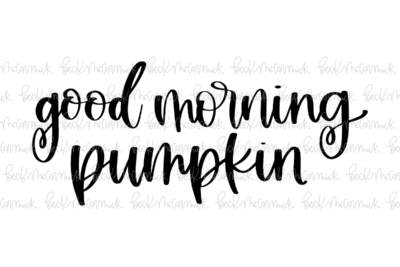 good morning
pumpkin